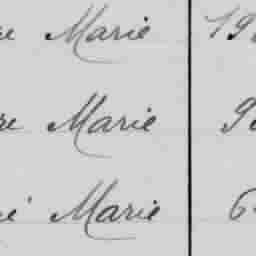 re Marie 19
re Marie 9
é Marie 6